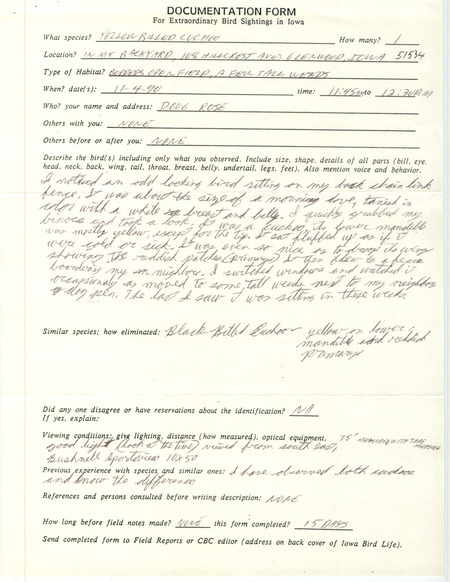 DOCUMENTATION FORM
For Extraordinary Bird Sightings in Iowa
What species? YELLOW BILLED CUCKOO How many? 1
Location? IN MY BACKYARD, 108 HILLCREST AVE. GLENWOOD, IOWA 51534
Type of Habitat? BORDERS OPEN FIELD, A FEW TALL WEEDS
When? date(s): 11-4-90 time: 11:45AM to 12:30PM
Who? your name and address: DOUG ROSE
Others with you: NONE
Others before or after you: NONE
Describe the bird(s) including only what you observed. Include size, shape, details of all parts (bill, eye,
head, neck, back, wing, tail, throat, breast, belly, undertail, legs, feet). Also mention voice and behavior.
I noticed an odd looking bird sitting on my back chain link
fence. It was about the size of a morning dove, tanish in
color with a white breast and belly. I quickly grabbed my
binocs and took a look. It was a cuckoo, its lower mandible
was mostly yellow, except for the tip. It sat fluffed up as if it
were cold or sick. It was even so nice as to droop its wings
showing the reddish patches (primarys) I then flew to a fence
boardering my neighbor. I switched windows and watched it
occasionaly as moved to some tall weeds next to my neighbors
dog pen. The last I saw it was sitting in these weeds.
Similar species; how eliminated: Black Billed Cuckoo - yellow on lower
mandible and reddish
primarys
Did any one disagree or have reservations about the identification? NA
If yes, explain:
Viewing conditions: give lighting, distance (how measured), optical equipment. 75' MEASURED WITH TAPE MEASURE
good light (back at the time) viewed from south east,
Bushnell Sportview 10x50
Previous experience with species and similar ones: I have observed both cuckoos
and know the difference
References and persons consulted before writing description: NONE
How long before field notes made? NONE this form completed? 15 DAYS
Send completed form to Field Reports or CBC editor (address on back cover of Iowa Bird Life).